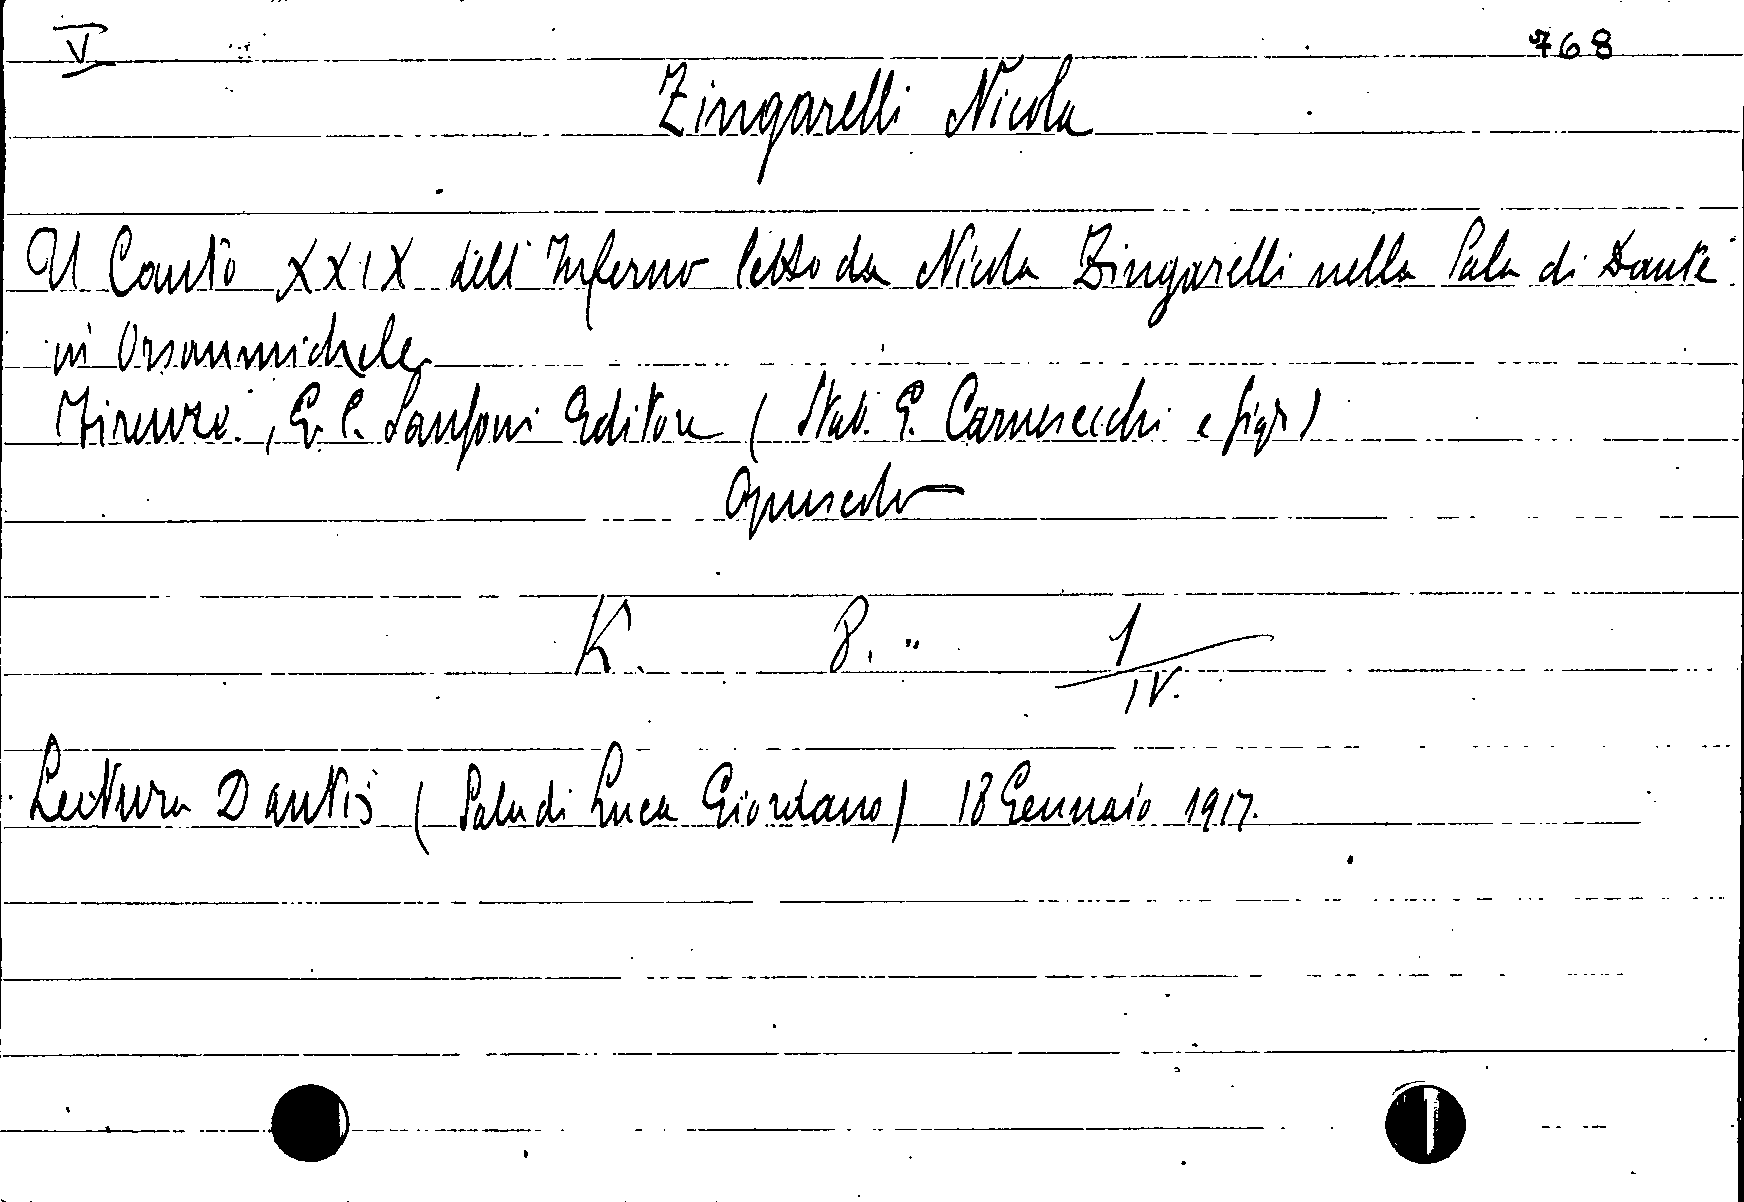 V 768
Zingarelli Nicola
Il Canto XXIX dell'Inferno letto da Nicola Zingarelli nella Sala di Dante
in Orsanmichele
Firenze, G. C. Sansoni Editore (Stab. G. Carnesecchi e figli)
Opuscolo
K. 8. " 1/IV.
Lectura Dantis (Sala di Luca Giordano) 18 Gennaio 1917.